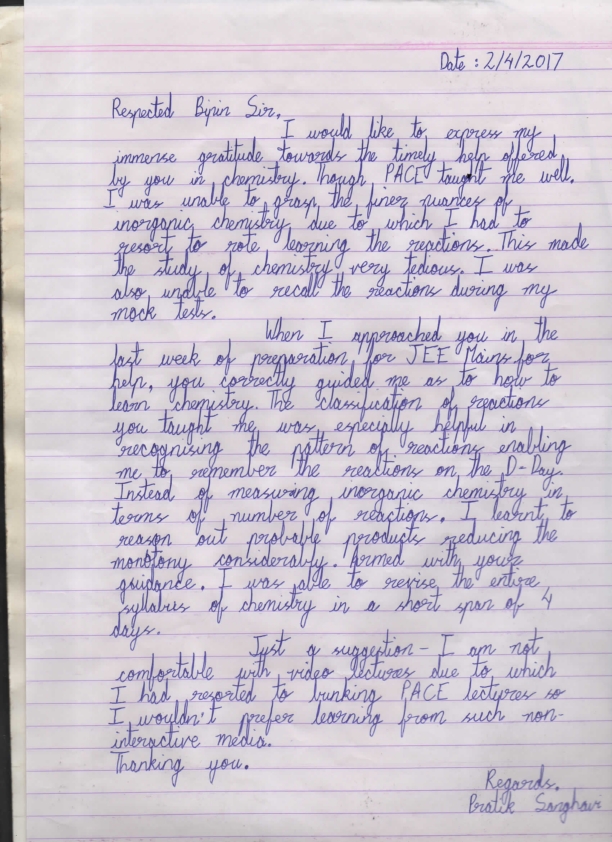 Date : 2/4/2017
Respected Bipin Sir,
I would like to express my
immense gratitude towards the timely help offered
by you in chemistry. Though PACE taught me well.
I was unable to grasp the finer nuances of
inorganic chemistry due to which I had to
resort to rote learning the reactions. This made
the study of chemistry very tedious. I was
also unable to recall the reactions during my
mock tests.
When I approached you in the
last week of preparation for JEE Mains for
help, you correctly guided me as to how to
learn chemistry. The classification of reactions
you taught me was especially helpful in
recognising the pattern of reactions enabling
me to remember the reactions on the D-Day.
Instead of measuring inorganic chemistry in
terms of number of reactions. I learnt to
reason out probable products reducing the
monotony considerably. Armed with your
guidance. I was able to revise the entire
syllabus of chemistry in a short span of 4
days.
Just a suggestion - I am not
comfortable with video lectures due to which
I had resorted to bunking PACE lectures so
I wouldn't prefer learning from such non-
interactive media.
Thanking you.
Regards.
Pratik Sanghavi